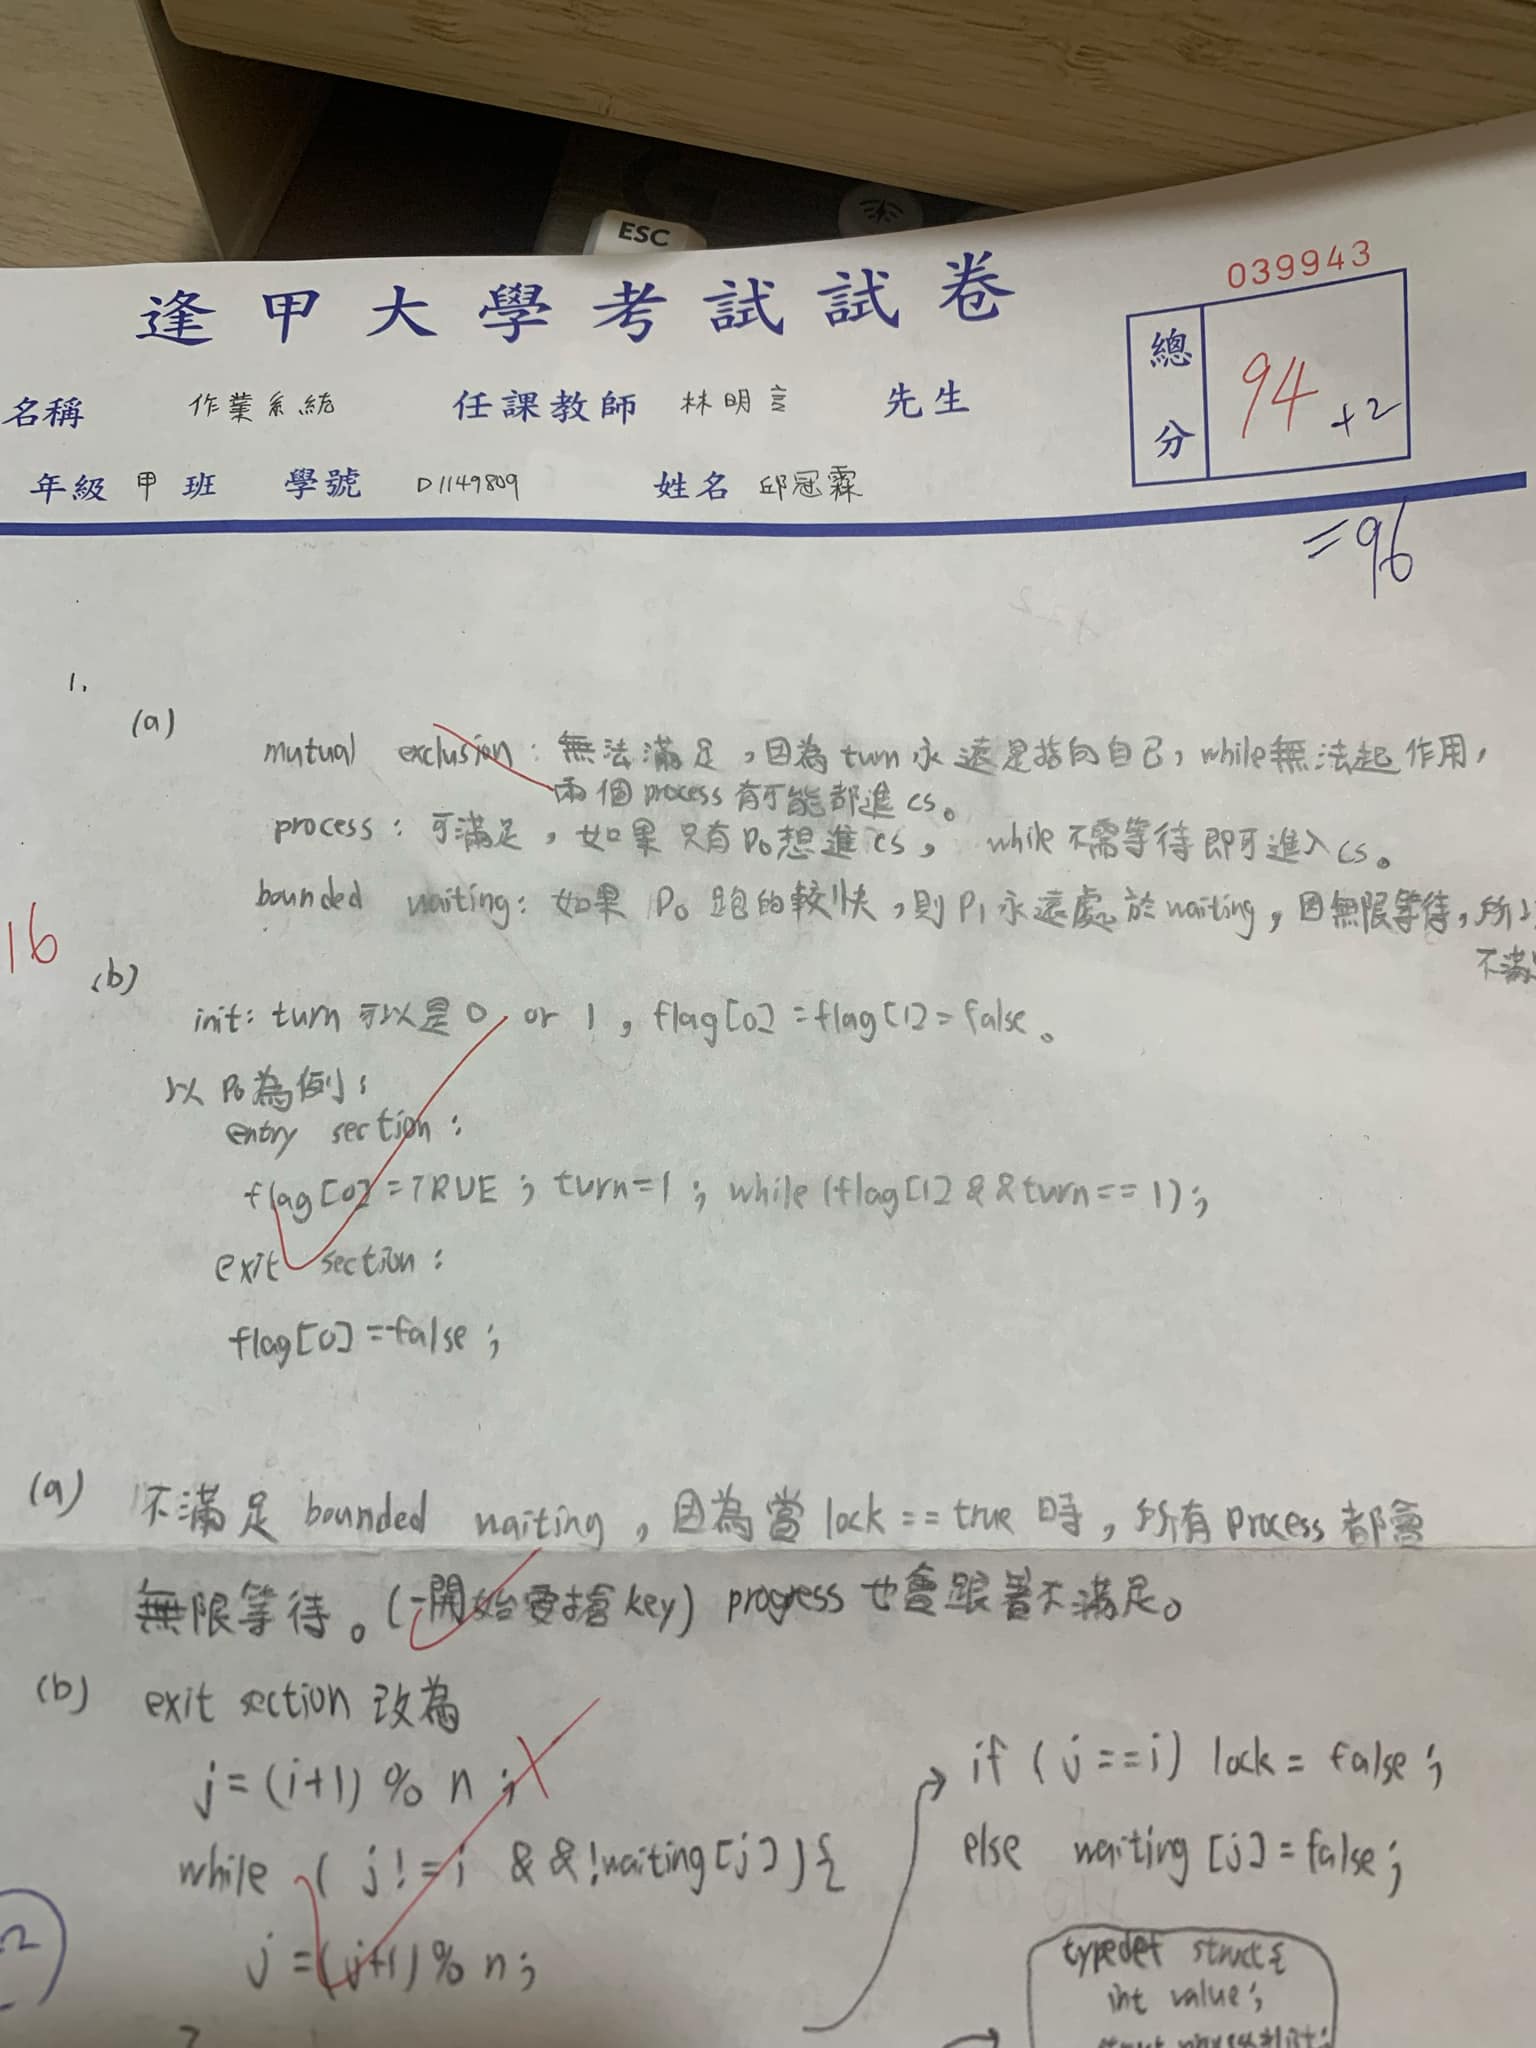 ESC
逢甲大學考試試卷
039943
總分
94 +2
=96
名稱 作業系統 任課教師 林明言 先生
年級 甲 班 學號 D1149809 姓名 邱冠霖
1.
(a)
mutual exclusion: 無法滿足，因為turn永遠是指向自己，while無法起作用，
兩個process有可能都進cs。
process: 可滿足，如果只有P0想進cs， while不需等待即可進入cs。
bounded waiting: 如果 P0 跑的較快，則P1永遠處於waiting，因無限等待，所以
不滿足
16
(b)
init: turn可以是0 or 1, flag[0]=flag[1]=false。
以P0為例:
entry section:
flag[0]=TRUE; turn=1; while(flag[1]&&turn==1);
exit section:
flag[0]=false;
(a) 不滿足 bounded waiting，因為當lock==true時，所有process都會
無限等待。(一開始要搶key) progress也會跟著不滿足。
(b) exit section改為
j=(i+1)%n;
while(j!=i &&!waiting[j]){
j=(j+1)%n;
if(j==i) lock=false;
else waiting[j]=false;
2
typedef struct{
int value;